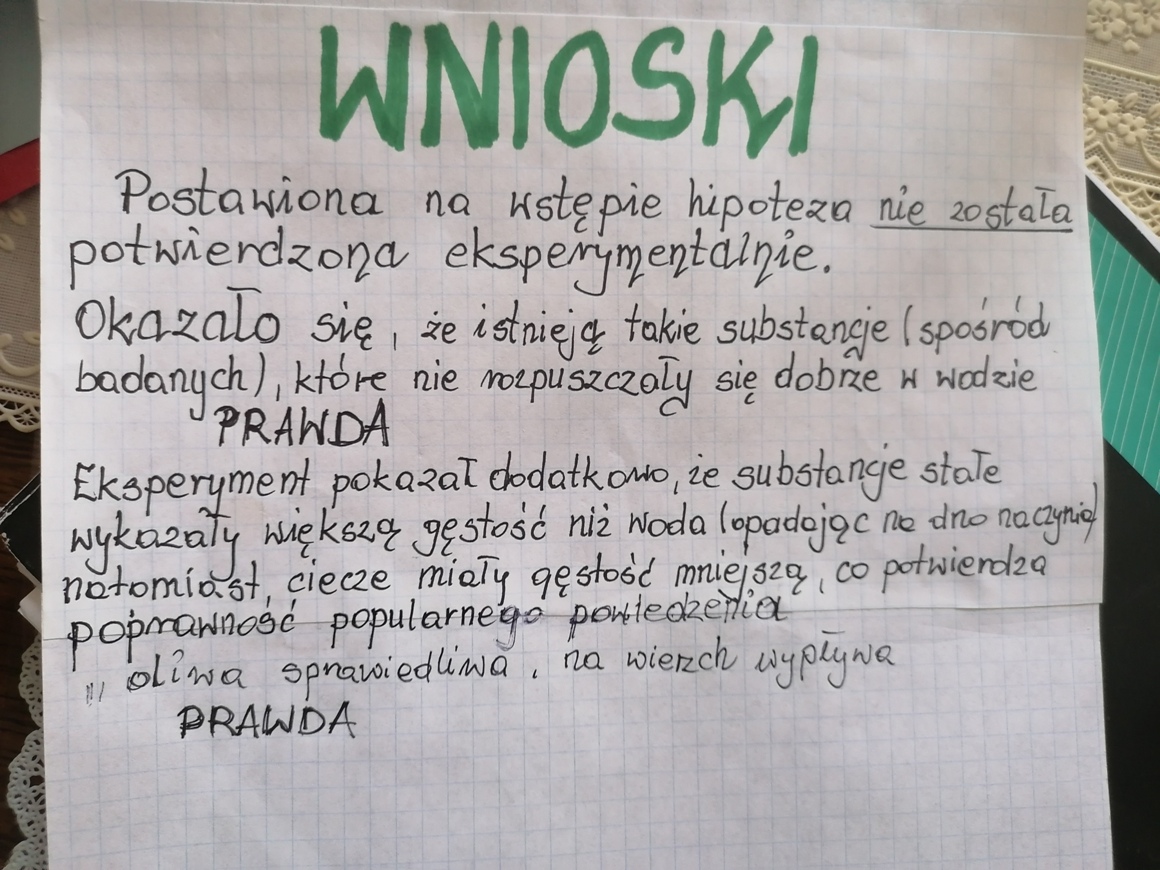 WNIOSKI
Postawiona na wstępie hipoteza nie została
potwierdzona eksperymentalnie.
Okazało się, że istnieją takie substancje (spośród
badanych), które nie rozpuszczały się dobrze w wodzie
PRAWDA
Eksperyment pokazał dodatkowo, że substancje stałe
wykazały większą gęstość niż woda (opadając na dno naczynia)
natomiast, ciecze miały gęstość mniejszą, co potwierdza
poprawność popularnego powiedzenia
„ oliwa sprawiedliwa, na wierzch wypływa
PRAWDA